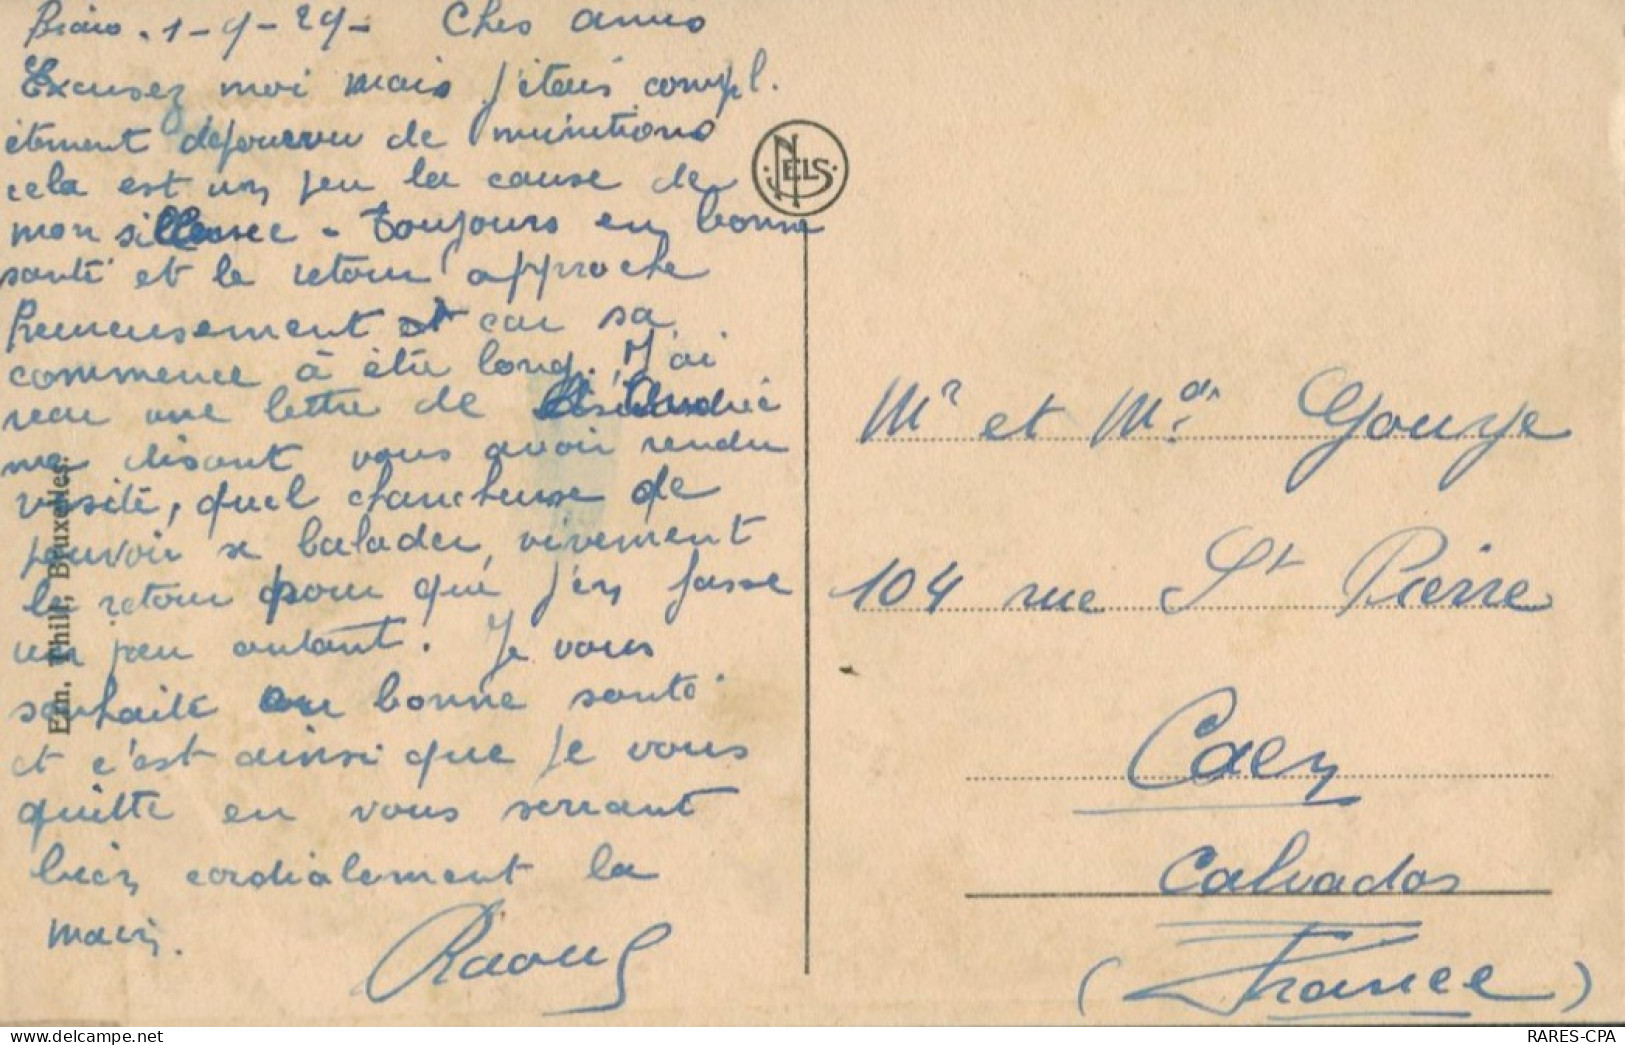 1-9-29- Chers amis
Excusez moi mais j'étais compl.
ètement dépourvu de munitions
cela est un peu la cause de
mon sillence - toujours en bonne
santé et le retour approche
heureusement car sa
commence à être long. J'ai
reau une lettre de Andrée
me disant vous avoir rendu
visite, quel chancheuse de
pouvoir se balader, vivement
le retour pour que j'en fasse
un peu autant. Je vous
souhaite bonne santé
et c'est ainsi que je vous
quitte en vous serrant
bien cordialement la
main.
Raoul
Ern. Thill, Bruxelles.
NELS
Mr et Mdᵉ Gouye
104 rue St Pierre
Caen
Calvados
(France)
RARES-CPA